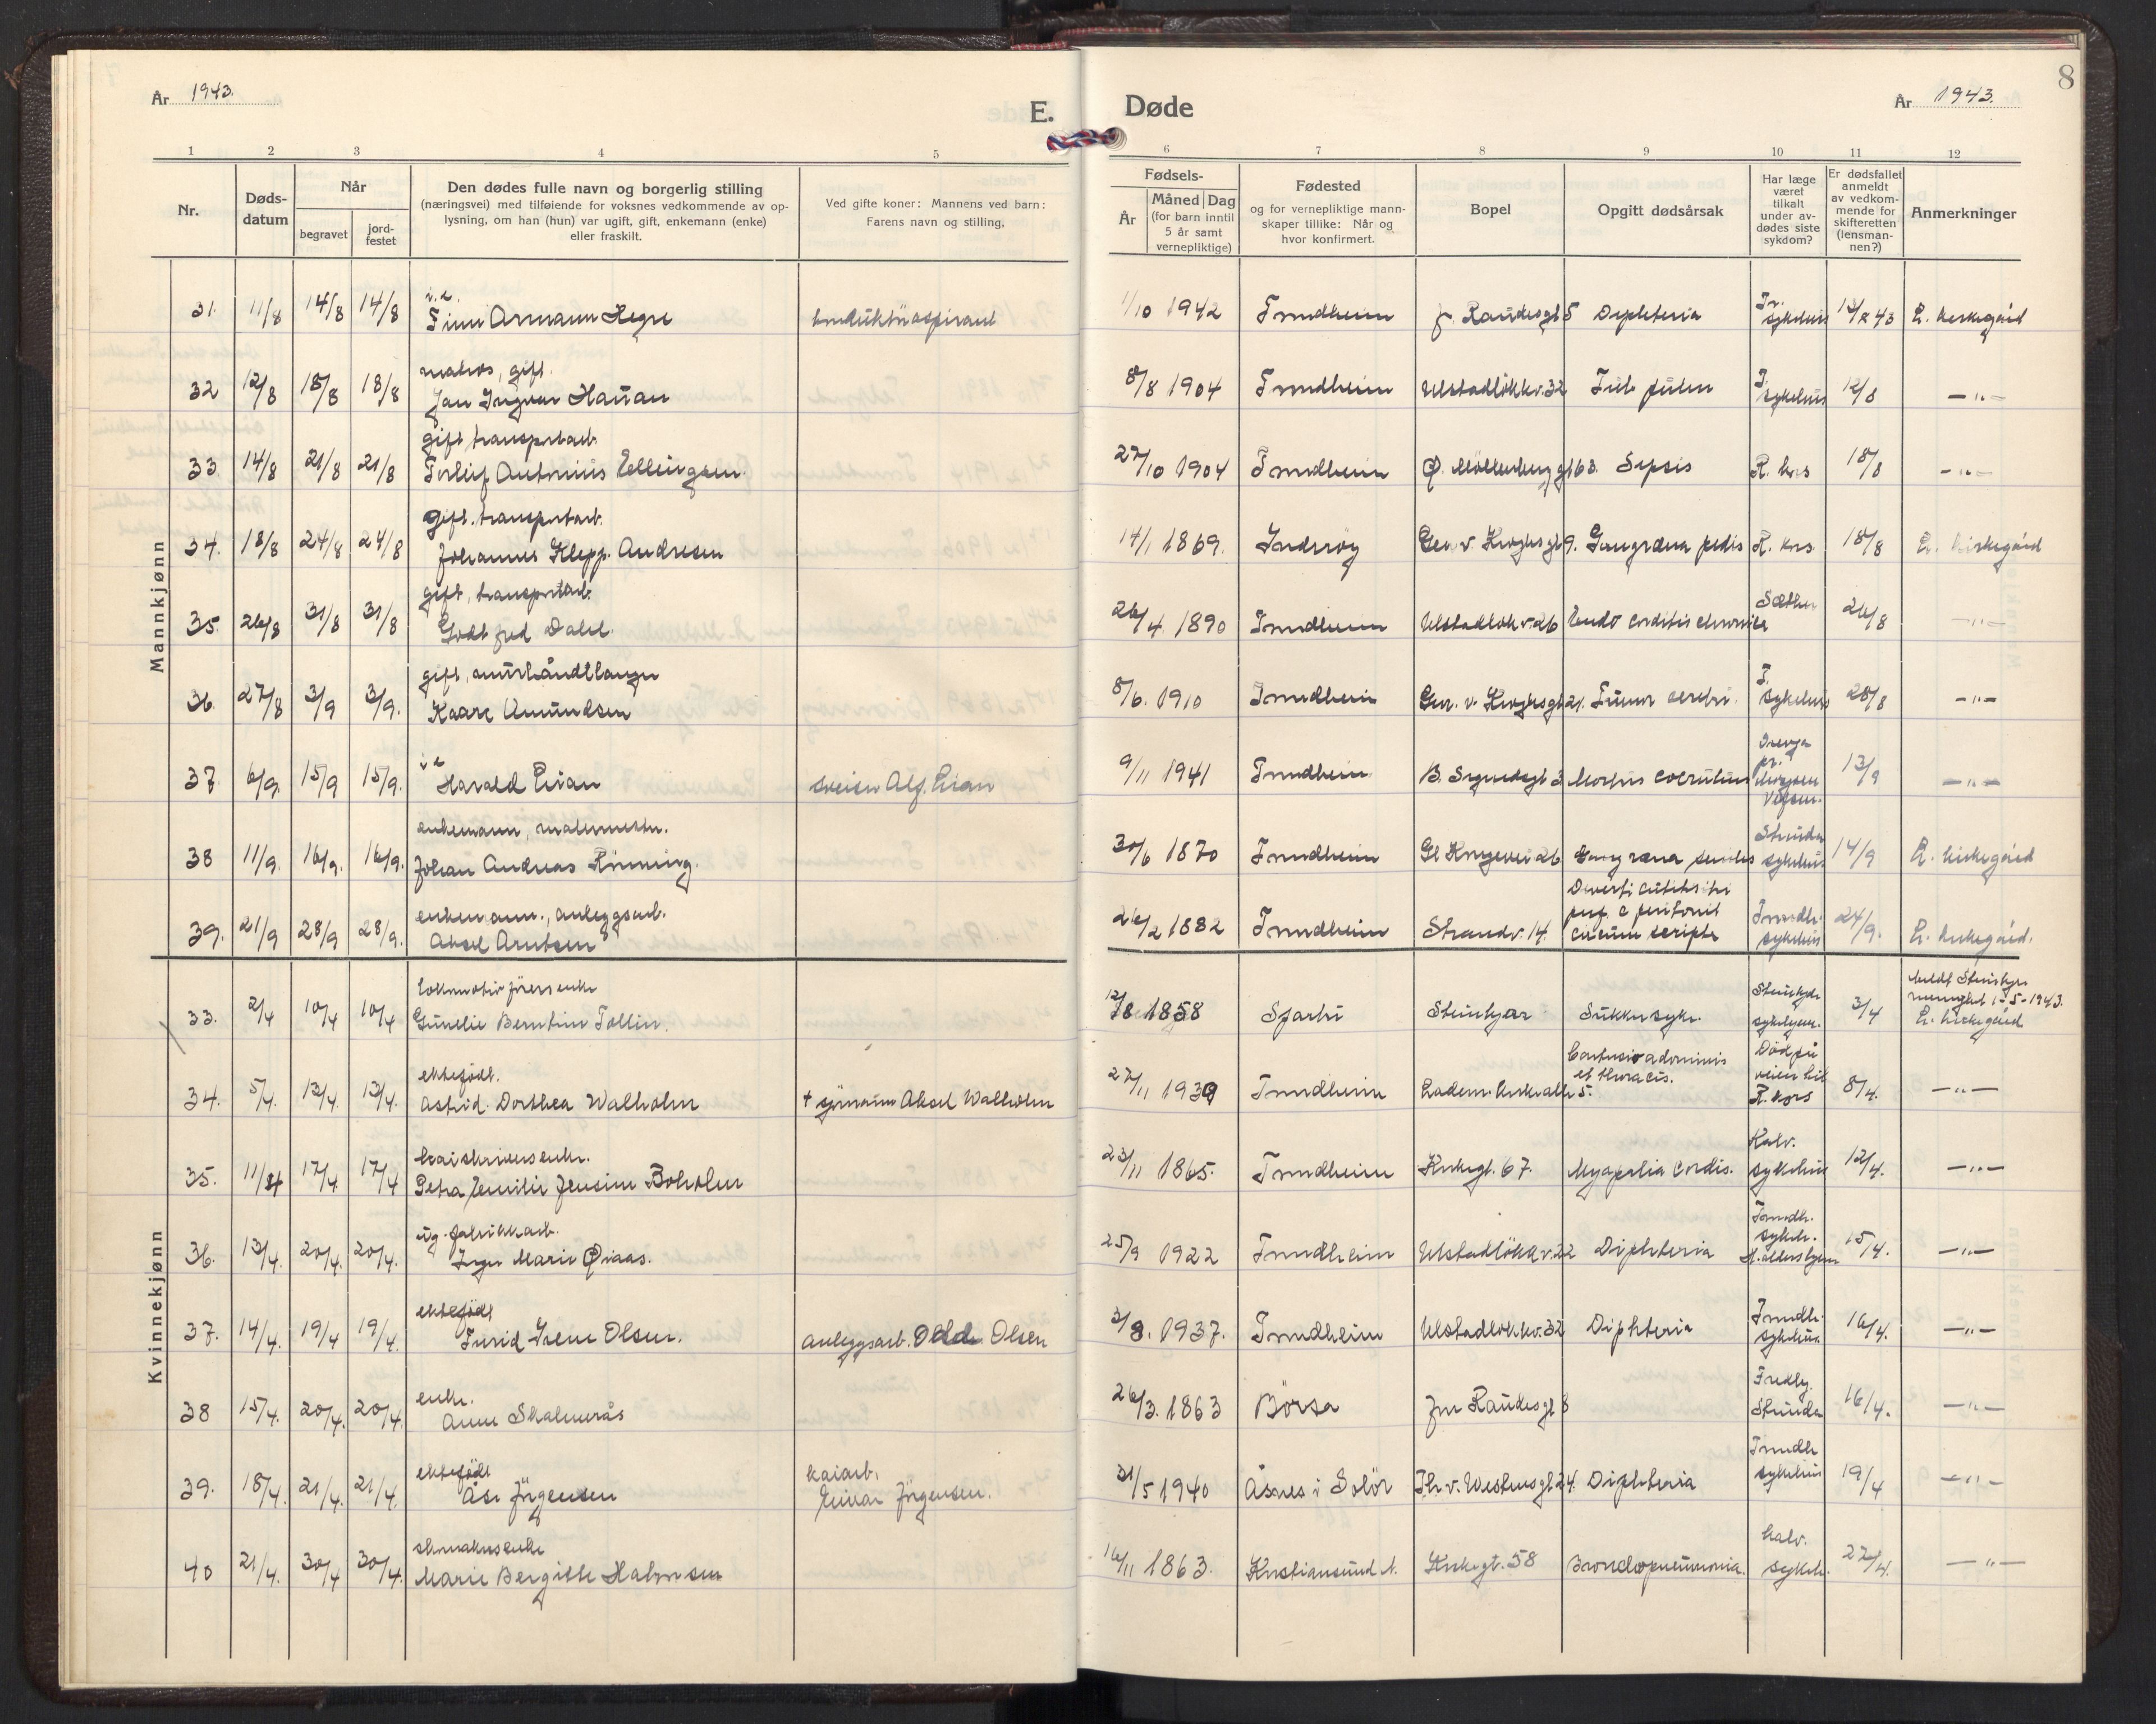 År 1943.
E.
Døde
År 1943.
8
1 2 3 4 5 6 7 8 9 10 11 12
Nr.
Døds-
datum
Når
begravet
jord-
festet
Den dødes fulle navn og borgerlig stilling
(næringsvei) med tilføiende for voksnes vedkommende av op-
lysning, om han (hun) var ugift, gift, enkemann (enke)
eller fraskilt.
Ved gifte koner: Mannens ved barn:
Farens navn og stilling.
Fødsels-
År
Måned Dag
(for barn inntil
5 år samt
vernepliktige)
Fødested
og for vernepliktige mann-
skaper tillike: Når og
hvor konfirmert.
Bopel
Opgitt dødsårsak
Har læge
været
tilkalt
under av-
dødes siste
sykdom?
Er dødsfallet
anmeldt
av vedkom-
mende for
skifteretten
(lensman-
nen?)
Anmerkninger
Mannkjønn
31. 11/8 14/8 14/8 Finn Armann Hegre 1/10 1942 Trondheim Raudesgt 5 Diphteria Tr. sykehus 43 L. kirkegård
matros, gift.
32 12/8 18/8 18/8 Jan Ingvar Hanan 8/8 1904 Trondheim Ulstadløkkv. 32 Tub. pulm T. sykehus 12/8 — " —
gift transportarb.
33 14/8 21/8 21/8 Torleif Antonius Ellingsen. 27/10 1904 Trondheim Ø. Møllenberg gt 63. Sepsis R. kors 18/8 — " —
gift. transportarb.
34. 18/8 24/8 24/8 Johannes Klepp. Andresen 14/1 1869. Inderøy Gen. v. Kroghsgt 9. Gangræna pedis R. kors 18/8 L. kirkegård
gift, transportarb.
35. 26/8 31/8 31/8 Gottfred Dahl. 26/4. 1890 Trondheim Ulstadløk v. 26 Endo corditis chronica Sæther 26/8 — " —
gift, murhåndtlanger
36. 27/8 3/9 3/9. Kaare Amundsen 8/6. 1910 Trondheim Gen. v. Kroghsgt 21. Tumor cerebri. T. sykehus 28/8 — " —
37. 6/9. 15/9 15/9. Harald Lian sveiser Alf. Lian 9/11 1941 Trondheim B. 3 Morbus coeruleus 13/9 — " —
enkemann, malermester.
38 11/9. 16/9. 16/9. Johan Andreas Rönning. 30/6 1870 Trondheim Gl Kongevei 26 Gangræna senilis Strinda sykehus 14/9 L. kirkegård
enkemann., anleggsarb.
39. 21/9 28/9 28/9. Aksel Arntsen 26/2 1882 Trondheim Strandv. 14. perf. c peritonit Trondh. sykehus 24/9. L. kirkegård.
Kvinnekjønn
lokomotivførerenke
33. 2/4 10/4 10/4 Gunelie Berntine Tollin. 12/8 1858 Sparbu Steinkjer Sukkersyke. Steinkjer sykehjem. 3/4 meldt Steinkjer menighet 1-5-1943. L. kirkegård
ektefødt.
34. 5/4. 13/4. 13/4. Astrid Dorthea Walholm + sjømann Aksel Walholm 27/11 1939 Trondheim Ladem. kirkeallé 5. Contusio adominis et thoracis. Död på veien til R. kors 8/4. — " —
kaiskriverenke.
35. 11/4 17/4 17/4 Petra Emilie Jensine Boholm 23/11 1865. Trondheim Kirkegt. 67. Myapatia cordis. Kalv. sykehus 12/4. — " —
ug. fabrikkarb.
36. 13/4. 20/4. 20/4. Inger Marie Øiaas. 25/9 1922 Trondheim Ulstadløkkv. 22 Diphteria Trondh. sykeh. 15/4. — " —
ektefødt
37. 14/4. 19/4 19/4. Turid Irene Olsen. anleggsarb. Odd. Olsen 3/8. 1937. Trondheim Ulstadløkkv. 32 Diphteria Trondh. sykehus 16/4. — " —
enke.
38 15/4. 20/4. 20/4. Anne Skalmerås 26/3. 1863 Börsa Jon Raudesgt 8 Fredly. Strinda 16/4. — " —
ektefødt
39. 18/4. 21/4. 21/4. Åse Jörgensen kaiarb. Einar Jörgensen. 31/5 1940 Åsnes i Solör Th. v. Westensgt 24. Diphteria Trondh sykehus 19/4 — " —
skomakerenke
40 21/4. 30/4 30/4. Marie Bergitte Halvorsen 16/11 1863. Kristiansund N. Kirkegt. 58 Broncopneumonia. kalv. sykeh. 27/4. — " —